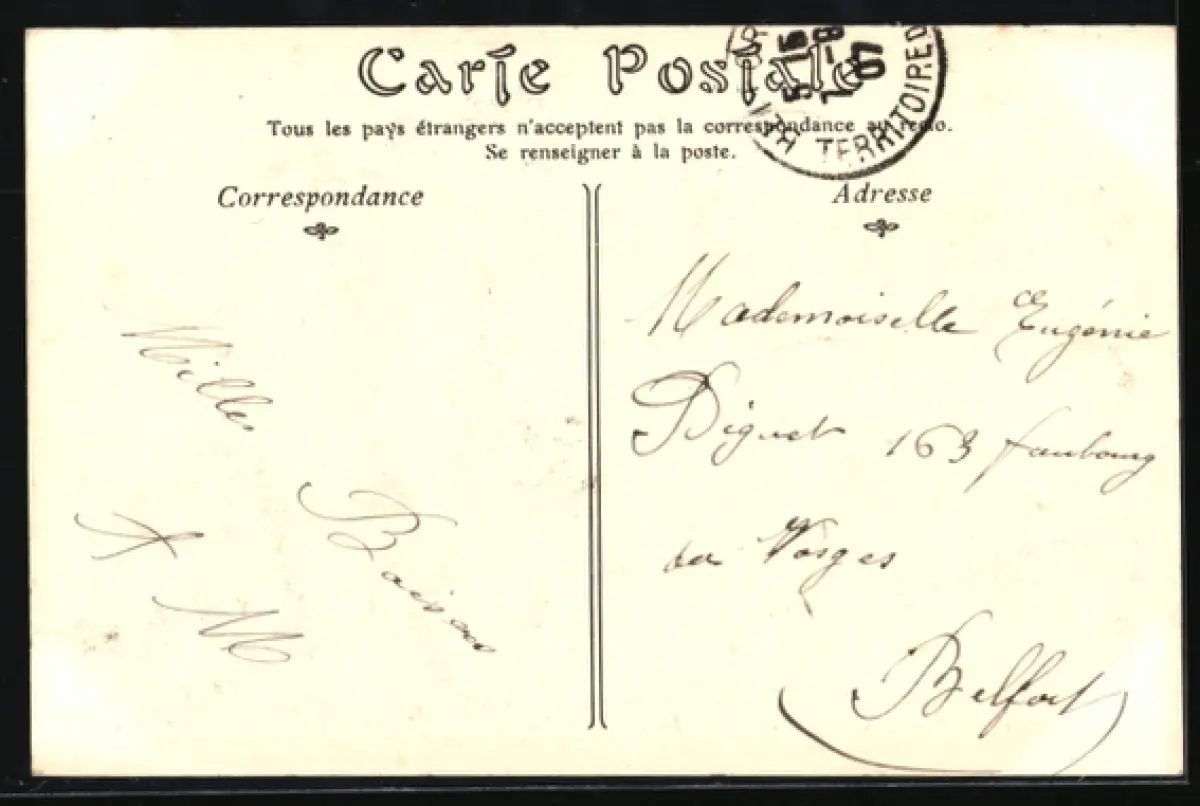 Carte Postale
Tous les pays étrangers n'acceptent pas la correspondance au recto.
Se renseigner à la poste.
TERRITOIRE D
Correspondance
Adresse
Milles
Baisers
A M
Mademoiselle Eugénie
Diguet 163 faubourg
des Vosges
Belfort